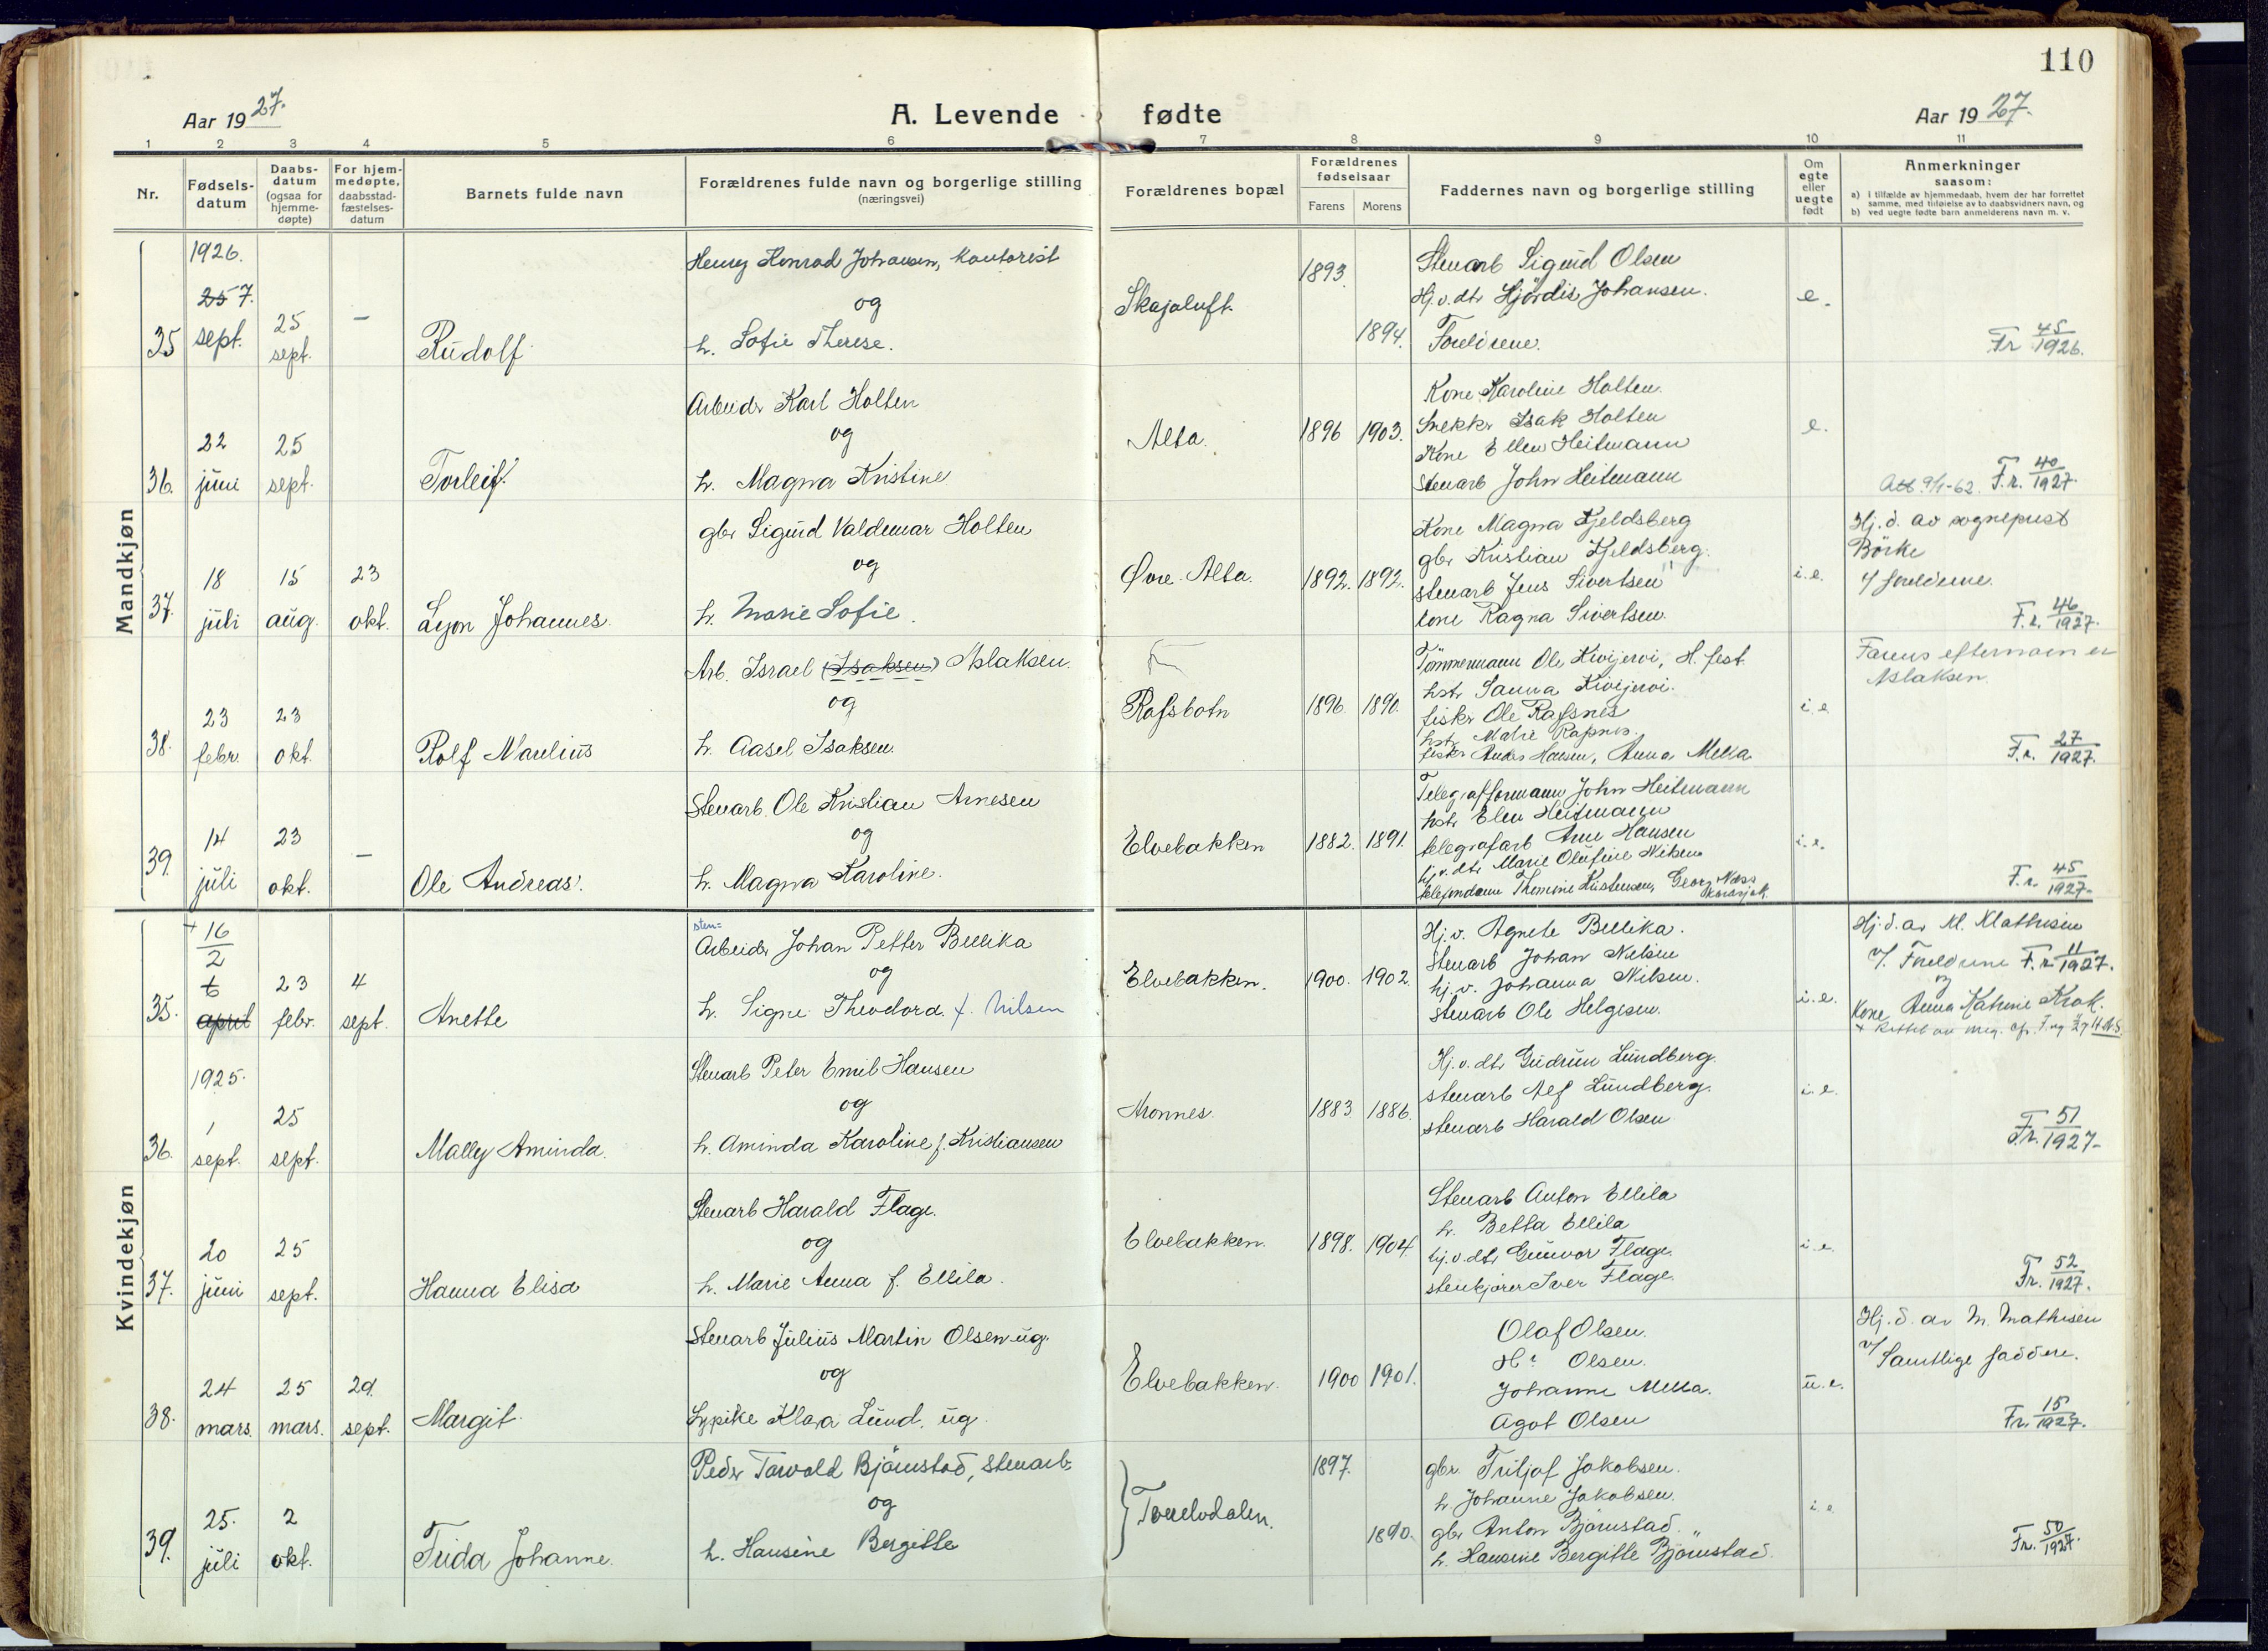 110
Aar 1927.
A. Levende fødte
Aar 1927.
1 2 3 4 5 6 7 8 9 10 11
Nr.
Fødsels-
datum
Daabs-
datum
(ogsaa for
hjemme-
døpte)
For hjem-
medøpte,
daabsstad-
fæstelses-
datum
Barnets fulde navn
Forældrenes fulde navn og borgerlige stilling
(næringsvei)
Forældrenes bopæl
Forældrenes
fødselsaar
Farens Morens
Faddernes navn og borgerlige stilling
Om
egte
eller
uegte
født
Anmerkninger
saasom:
a) i tilfælde av hjemmedaab, hvem der har forrettet
samme, med tilføielse av to daabsvidners navn, og
b) ved uegte fødte barn anmelderens navn m. v.
Mandkjøn
35
1926.
25 7.
sept.
25
sept.
—
Rudolf
Henry Konrad Johansen, kontorist
og
h. Sofie Therese.
Skajaluft.
1893.
1894.
Stenarb Sigurd Olsen
Hj.v.dtr Hjördis Johansen.
Foreldrene.
e.
Fr 45/1926.
36.
22
juni
25
sept.
Torleif
Arbeider Karl Holten
og
h. Magna Kristine
Alta.
1896 1903.
Kone Karoline Holten.
Snekker Isak Holten
Kone Ellen Heitmann
Stenarb John Heitmann
e.
Att 9/1-62. F.r. 40/1927.
37.
18
juli
15
aug.
23
okt.
Lyon Johannes.
gbr Sigurd Valdemar Holten
og
h. Marie Sofie.
Øvre Alta.
1892. 1892.
Kone Magna Kjeldsberg
gbr Kristian Kjeldsberg.
stenarb Jens Sivertsen
kone Ragna Sivertsen.
i.e.
Hj.d. av sogneprest
Börke
v/ foreldrene.
F.r. 46/1927.
38.
23
febr.
23
okt.
Rolf Marelius
Arb. Israel (Isaksen) Aslaksen.
og
h. Aasel Isaksen.
Rafsbotn
1896. 1890.
Tömmermann Ole Kivijervi, H.fest.
hstr Sanna Kivijervi.
fisker Ole Rafsnes
fisker Anders Hansen, Anna Mella
i.e.
Farens efternavn er
Aslaksen.
F.r. 27/1927.
39.
14
juli
23
okt.
—
Ole Andreas.
Stenarb. Ole Kristian Arnesen
og
h. Magna Karoline.
Elvebakken
1882. 1891.
Telegrafformann John Heitmann
hstr Elen Heitmann
telegrafarb Arne Hansen
hj.v.dtr Marie Olufine Nilsen
telefondame Thomine Kristensen, Georg Næss
Karasjok.
i.e.
F.r. 45/1927.
Kvindekjøn
35.
+ 16/2
6
april
23
febr.
4
sept.
Anette
sten-
Arbeider Johan Petter Bullika
og
h. Signe Theodora f. Nilsen
Elvebakken.
1900. 1902.
Hj.v. Agnete Bullika.
Stenarb Johan Nilsen
hj.v. Johanna Nilsen.
Stenarb Ole Helgesen.
i.e.
Hj.d. av M. Mathisen
v/. Foreldrene F.r. 11/1927.
og
Kone Anna Katrine Krok.
36.
1925.
1
sept.
25
sept.
Mally Aminda.
Stenarb Peter Emil Hansen
og
h. Aminda Karoline f. Kristiansen
Aronnes.
1883 1886.
Hj.v.dtr Gudrun Lundberg.
stenarb Alf Lundberg.
stenarb Harald Olsen
i.e.
Fr. 51/1927.
37.
20
juni
25
sept.
Hanna Elisa
Stenarb Harald Flage.
og
h. Marie Anna f. Ellila.
Elvebakken.
1898. 1904.
Stenarb Anton Ellila
h. Betta Ellila
hj.v.dtr Gunvor Flage.
stenkjører Iver Flage.
i.e.
Fr. 52/1927.
38.
24
mars.
25
mars.
29.
sept.
Margit.
Stenarb Julius Martin Olsen ug.
og
Lypike Klara Lund. ug.
Elvebakken.
1900 1901.
Olaf Olsen.
Hr Olsen.
Johanne Mella.
Agot Olsen
u.e.
Hj.d. av M. Mathisen
v/ Samtlige faddere.
Fr. 15/1927.
39.
25.
juli
2
okt.
Frida Johanne.
Peder Torvald Bjørnstad, stenarb.
og
h. Hansine Bergitte
Tverelvdalen.
1897.
1890.
gbr. Fritjof Jakobsen.
h. Johanne Jakobsen.
gbr Anton Bjørnstad.
h. Hansine Bergitte Bjørnstad.
i.e
Fr. 50/1927.